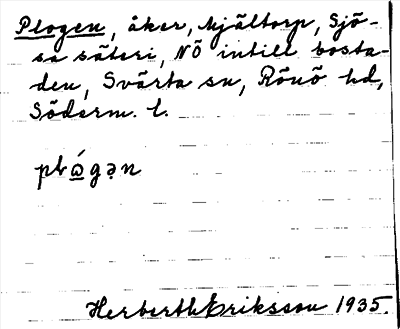 Plogen, åker, Mjältorp, Sjö-
sa säteri, NÖ intill bosta-
den, Svärta sn, Rönö hd,
Söderm. l.
Herberth Eriksson 1935.